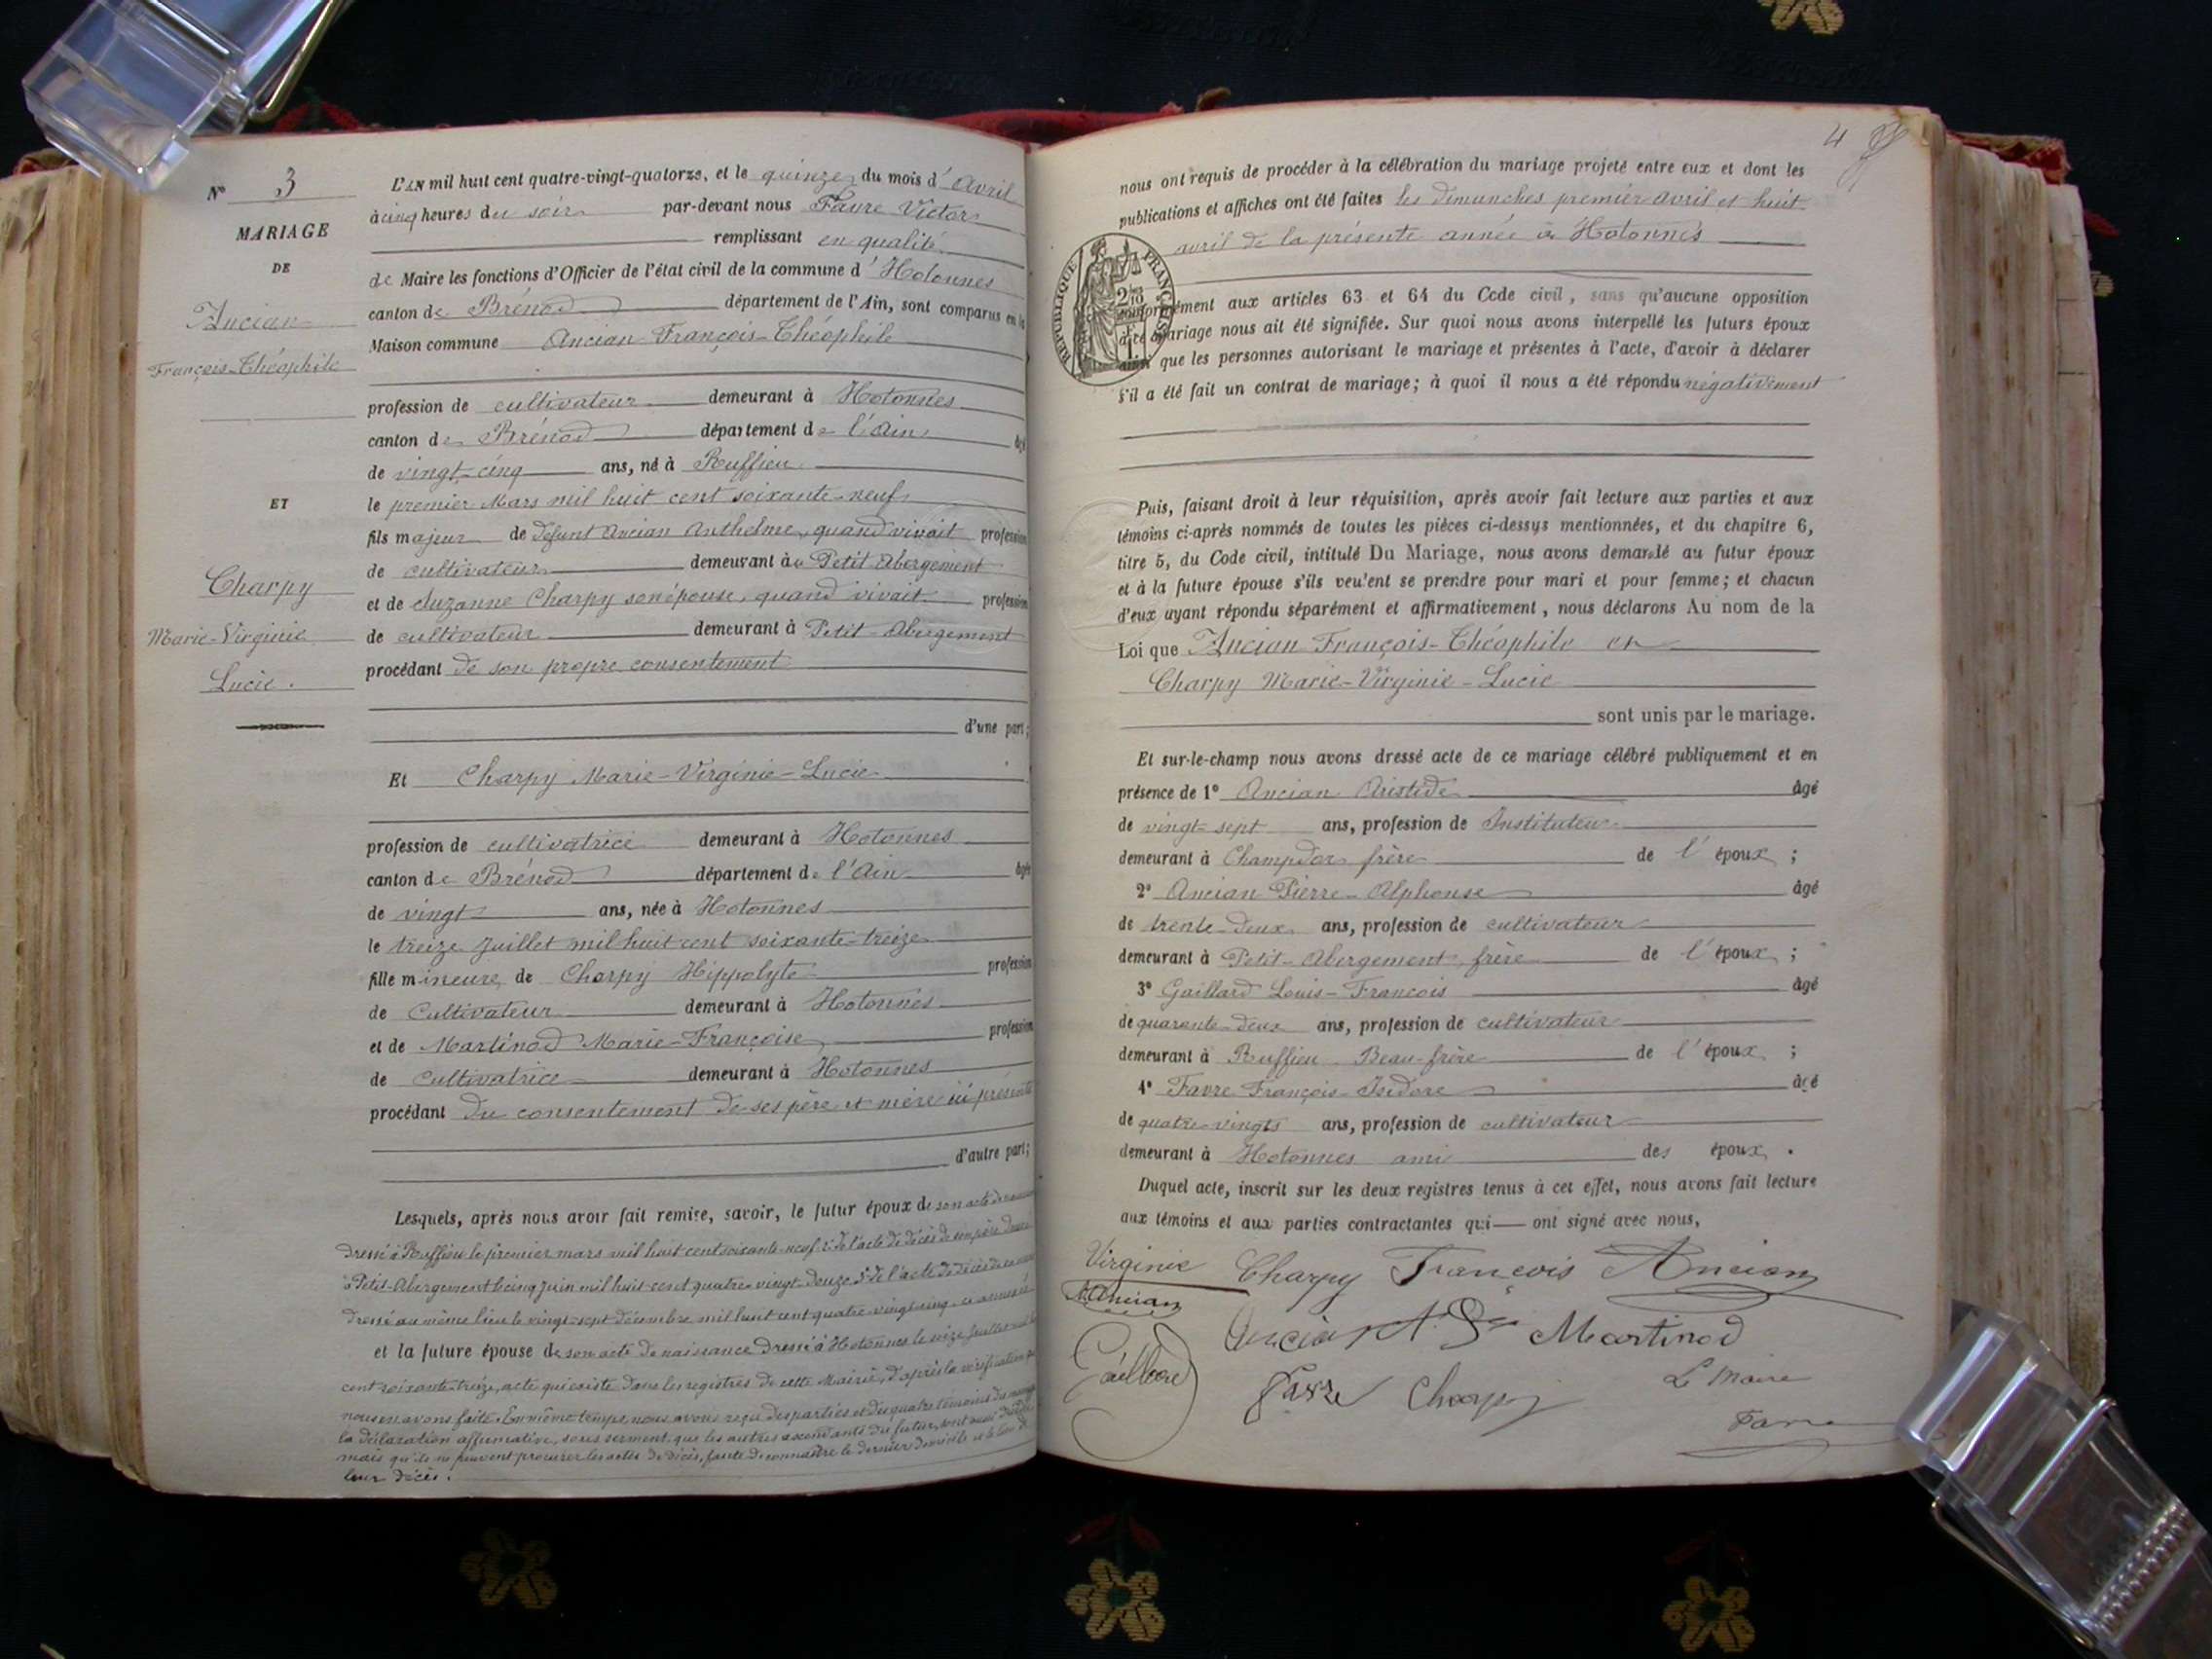 N° 3
MARIAGE
DE
Ancian
François-Théophile
ET
Charpy
Marie-Virginie
Lucie.
L'AN mil huit cent quatre-vingt-quatorze, et le quinze du mois d'Avril
à cinq heures du soir par-devant nous Favre Victor
remplissant en qualité
de Maire les fonctions d'Officier de l'état civil de la commune d'Hotonnes
canton de Brénod département de l'Ain, sont comparus en la
Maison commune Ancian François-Théophile
profession de cultivateur demeurant à Hotonnes
canton de Brénod département de l'Ain âgé
de vingt-cinq ans, né à Ruffieu
le premier Mars mil huit cent soixante-neuf
fils majeur de défunt Ancian Anthelme, quand vivait profession
de cultivateur demeurant à Petit-Abergement
et de Suzanne Charpy son épouse, quand vivait profession
de cultivateur demeurant à Petit-Abergement
procédant de son propre consentement
d'une part;
Et Charpy Marie-Virginie-Lucie
profession de cultivatrice demeurant à Hotonnes
canton de Brénod département de l'Ain âgée
de vingt ans, née à Hotonnes
le treize Juillet mil huit cent soixante-treize
fille mineure de Charpy Hippolyte profession
de Cultivateur demeurant à Hotonnes
et de Martinod Marie-Françoise profession
de Cultivatrice demeurant à Hotonnes
procédant du consentement de ses père et mère ici présents
d'autre part;
Lesquels, après nous avoir fait remise, savoir, le futur époux de son acte de
dressé à Ruffieu le premier mars mil huit cent soixante-neuf 2° de l'acte de décès de son père dressé
à Petit-Abergement le cinq juin mil huit cent quatre-vingt-douze 3° de l'acte de décès de sa
dressé au même lieu le vingt-sept décembre mil huit cent quatre-vingt-cinq
et la future épouse de son acte de naissance dressé à Hotonnes le seize Juillet mil
cent soixante-treize, acte qui existe dans les registres de cette Mairie, d'après la vérification que
nous en avons faite. En même temps, nous avons reçu des parties et des quatre témoins du mariage
la déclaration affirmative, sous serment, que les autres ascendants du futur, sont aussi décédés
mais qu'ils ne peuvent procurer les actes de décès, faute de connaître le dernier domicile et le lieu de
leur décès.
4
nous ont requis de procéder à la célébration du mariage projeté entre eux et dont les
publications et affiches ont été faites les dimanches premier avril et huit
avril de la présente année à Hotonnes
RÉPUBLIQUE FRANÇAISE
conformément aux articles 63 et 64 du Code civil, sans qu'aucune opposition
à ce mariage nous ait été signifiée. Sur quoi nous avons interpellé les futurs époux
ainsi que les personnes autorisant le mariage et présentes à l'acte, d'avoir à déclarer
s'il a été fait un contrat de mariage; à quoi il nous a été répondu négativement
Puis, faisant droit à leur réquisition, après avoir fait lecture aux parties et aux
témoins ci-après nommés de toutes les pièces ci-dessus mentionnées, et du chapitre 6,
titre 5, du Code civil, intitulé Du Mariage, nous avons demandé au futur époux
et à la future épouse s'ils veulent se prendre pour mari et pour femme; et chacun
d'eux ayant répondu séparément et affirmativement, nous déclarons Au nom de la
Loi que Ancian François-Théophile et
Charpy Marie-Virginie-Lucie
sont unis par le mariage.
Et sur-le-champ nous avons dressé acte de ce mariage célébré publiquement et en
présence de 1° Ancian Aristide âgé
de vingt-sept ans, profession de Instituteur
demeurant à Champdor frère de l'époux;
2° Ancian Pierre-Alphonse âgé
de trente-deux ans, profession de cultivateur
demeurant à Petit-Abergement frère de l'époux;
3° Gaillard Louis-François âgé
de quarante-deux ans, profession de cultivateur
demeurant à Ruffieu Beau-frère de l'époux;
4° Favre François-Isidore âgé
de quatre-vingts ans, profession de cultivateur
demeurant à Hotonnes ami des époux.
Duquel acte, inscrit sur les deux registres tenus à cet effet, nous avons fait lecture
aux témoins et aux parties contractantes qui ont signé avec nous,
Virginie Charpy François Ancian
A. Ancian
Ancian Martinod
Gaillard
Favre Charpy Le Maire
Favre